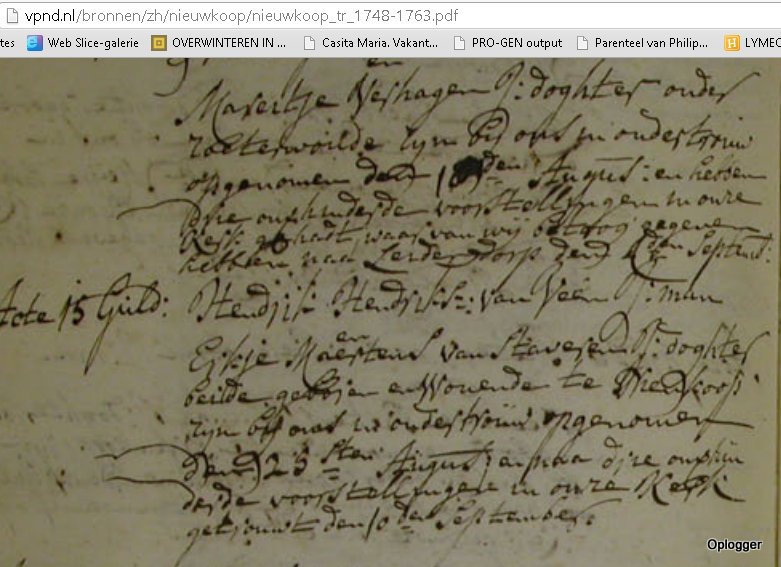 vpnd.nl/bronnen/zh/nieuwkoop/nieuwkoop_tr_1748-1763.pdf
tes Web Slice-galerie OVERWINTEREN IN ... Casita Maria. Vakant... PRO-GEN output Parenteel van Philip... LYMEC
en
Marritje Verhagen J: doghter onder
zoeterwoilde zijn bij ons in ondertrouw
opgenomen den 18den August: en hebben
drie onverhinderde voorstellingen in onze
kerk gehadt, waar van wij betoog gegeven
hebben naa Leiderdorp den den Septemb:
Acte 15 Guld: Hendrik Hendriksz: van Veen J: man
en
Eijtje Maertens van Staveren J: doghter
beide gebooren en Wonende te Nieukoop
zijn bij ons in ondertrouw opgenomen
den 25sten August: en naa drie onverhin
derde voorstellingen in onze Kerk
getrouwt den 10den September
Oplogger